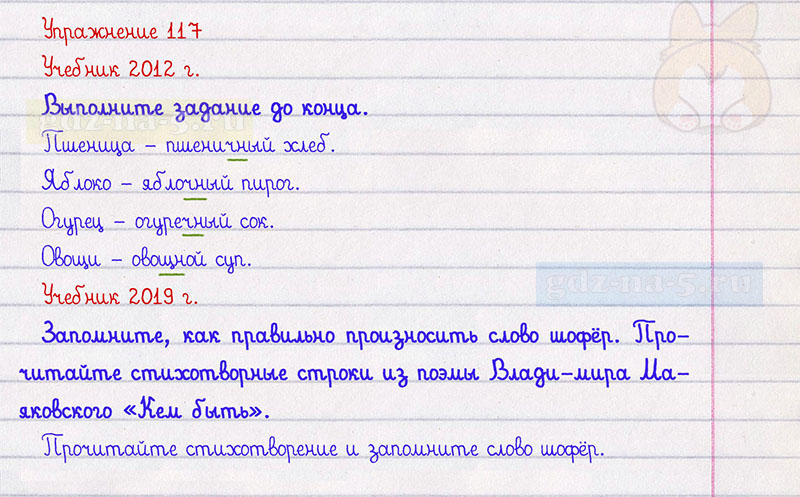 Упражнение 117
Учебник 2012 г.
Выполните задание до конца.
gdz-na-5.ru
Пшеница – пшеничный хлеб.
Яблоко – яблочный пирог.
Огурец – огуречный сок.
Овощи – овощной суп.
gdz-na-5.ru
Учебник 2019 г.
Запомните, как правильно произносить слово шофёр. Про-
читайте стихотворные строки из поэмы Влади-мира Ма-
яковского «Кем быть».
Прочитайте стихотворение и запомните слово шофёр.